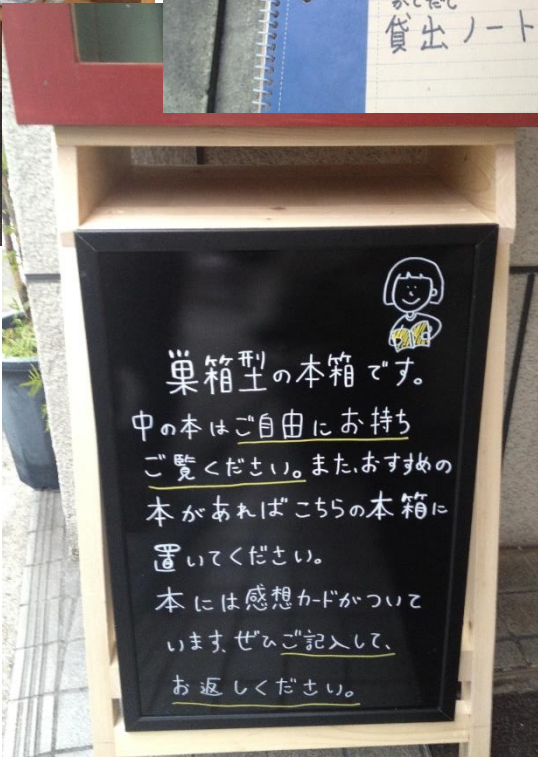 貸出ノート
巣箱型の本箱です。
中の本はご自由にお持ち
ご覧ください。また、おすすめの
本があればこちらの本箱に
置いてください。
本には感想カードがついて
います、ぜひご記入して、
お返しください。